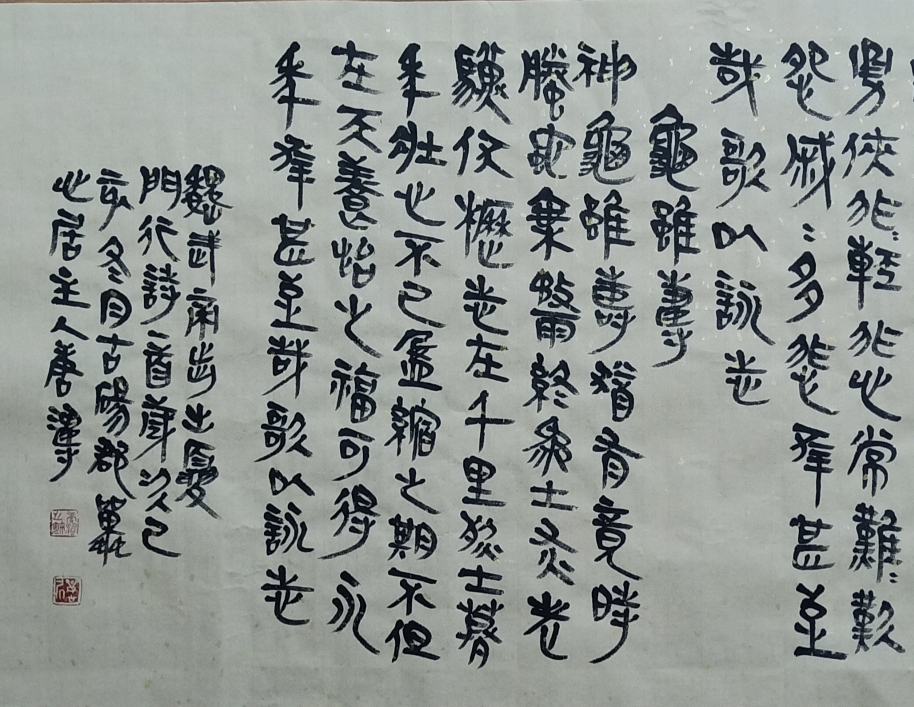 勇俠非輕非心常難歎
怨戚戚多悲幸甚至
哉歌以詠志
龜雖壽
神龜雖壽猶有竟時
騰蛇乘霧終為土灰老
驥伏櫪志在千里烈士暮
年壯心不已盈縮之期不但
在天養怡之福可得永
年幸甚至哉歌以詠志
魏武帝步出夏
門行詩首歲次己
亥冬月古碭郡
心居主人唐